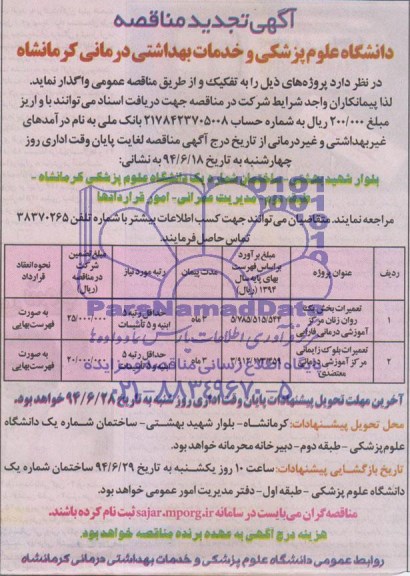 آگهی تجدید مناقصه
دانشگاه علوم پزشکی و خدمات بهداشتی درمانی کرمانشاه
در نظر دارد پروژه‌های ذیل را به تفکیک و از طریق مناقصه عمومی واگذار نماید.
لذا پیمانکاران واجد شرایط شرکت در مناقصه جهت دریافت اسناد می‌توانند با واریز
مبلغ ۲۰۰/۰۰۰ ریال به شماره حساب ۲۱۷۸۴۲۳۷۰۵۰۰۸ بانک ملی به نام درآمدهای
غیربهداشتی و غیردرمانی از تاریخ درج آگهی مناقصه لغایت پایان وقت اداری روز
چهارشنبه به تاریخ ۹۴/۶/۱۸ به نشانی:
بلوار شهید بهشتی - ساختمان شماره یک دانشگاه علوم پزشکی کرمانشاه -
مدیریت عمرانی- امور قراردادها
مراجعه نمایند. متقاضیان می‌توانند جهت کسب اطلاعات بیشتر با شماره تلفن ۳۸۳۷۰۲۶۵
تماس حاصل فرمایند.
ردیف عنوان پروژه مبلغ برآورد براساس فهرست بهای پایه سال ۱۳۹۴ (ریال) مدت پیمان رتبه مورد نیاز مبلغ تضمین شرکت در مناقصه (ریال) نحوه انعقاد قرارداد
۱ تعمیرات بخش یک روان زنان مرکز آموزشی درمانی فارابی ۳ ماه حداقل رتبه ۵ ابنیه و ۵ تاسیسات ۲۵/۰۰۰/۰۰۰ به صورت فهرست‌بهایی
۲ تعمیرات بلوک زایمانی مرکز آموزشی درمانی معتضدی ۳ ماه حداقل رتبه ۵ ۲۰/۰۰۰/۰۰۰ به صورت فهرست‌بهایی
ParsNamadData
پایگاه اطلاع رسانی مناقصه و مزایده
۰۲۱-۸۸۳۴۹۶۷۰-۵
آخرین مهلت تحویل پیشنهادات پایان وقت اداری روز شنبه به تاریخ ۹۴/۶/۲۸ خواهد بود.
محل تحویل پیشنهادات: کرمانشاه- بلوار شهید بهشتی- ساختمان شماره یک دانشگاه
علوم پزشکی - طبقه دوم- دبیرخانه محرمانه خواهد بود.
تاریخ بازگشایی پیشنهادات: ساعت ۱۰ روز یکشنبه به تاریخ ۹۴/۶/۲۹ ساختمان شماره یک
دانشگاه علوم پزشکی - طبقه اول- دفتر مدیریت امور عمومی خواهد بود.
مناقصه‌گران می‌بایست در سامانه sajar.mporg.ir ثبت نام کرده باشند.
هزینه درج آگهی به عهده برنده مناقصه خواهد بود.
روابط عمومی دانشگاه علوم پزشکی و خدمات بهداشتی درمانی کرمانشاه